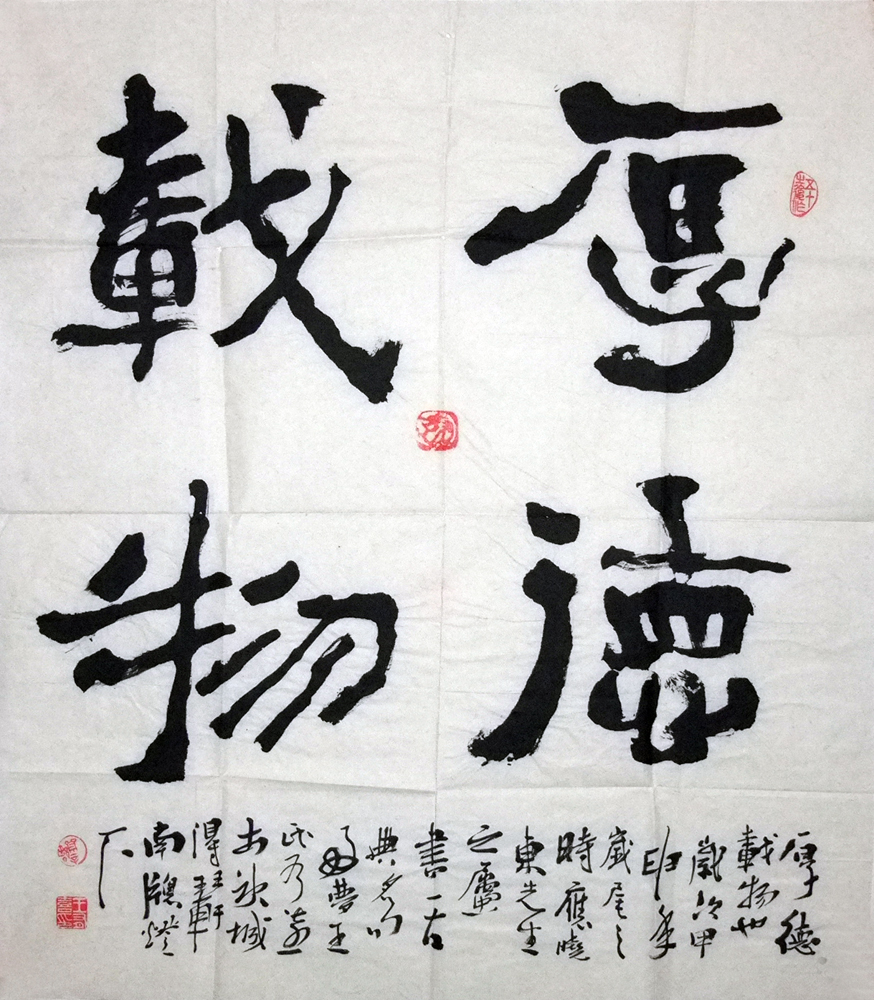 厚德
載物
厚德
載物也
歲次甲
申年
歲尾之
時應曉
東先生
之屬
書一古
典名句
夢玉
氏
冰城
得玉軒
南牖燈
下